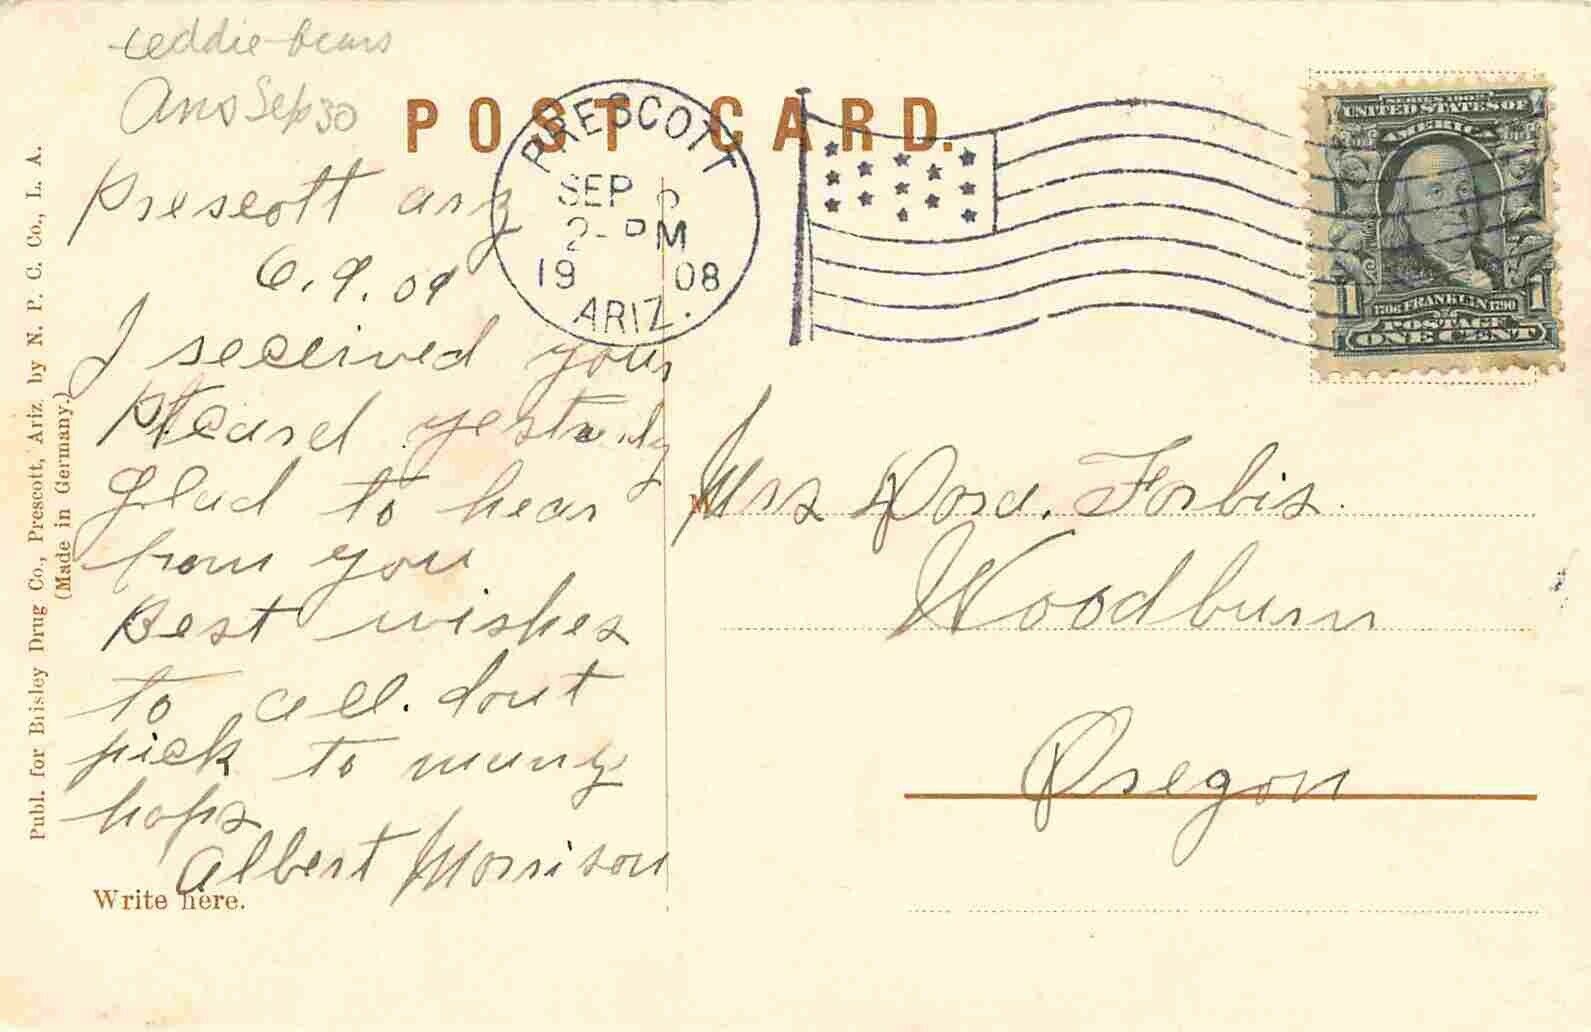 teddie bears
Ans Sep 30
POST CARD.
PRESCOTT
SEP 6
2- PM
1908
ARIZ.
SERIES 1902
UNITED STATES OF
AMERICA
1 1706 FRANKLIN 1790 1
POSTAGE
ONE CENT
Prescott ariz
6.9.09
I received your
Pcard yesterdy
glad to hear
from you
Best wishes
to all. dont
pick to many
hops
Albert Morrison
Write here.
Mrs Dora. Forbis.
Woodburn
Oregon
Publ. for Brisley Drug Co., Prescott, Ariz. by N. P. C. Co., L. A.
(Made in Germany.)